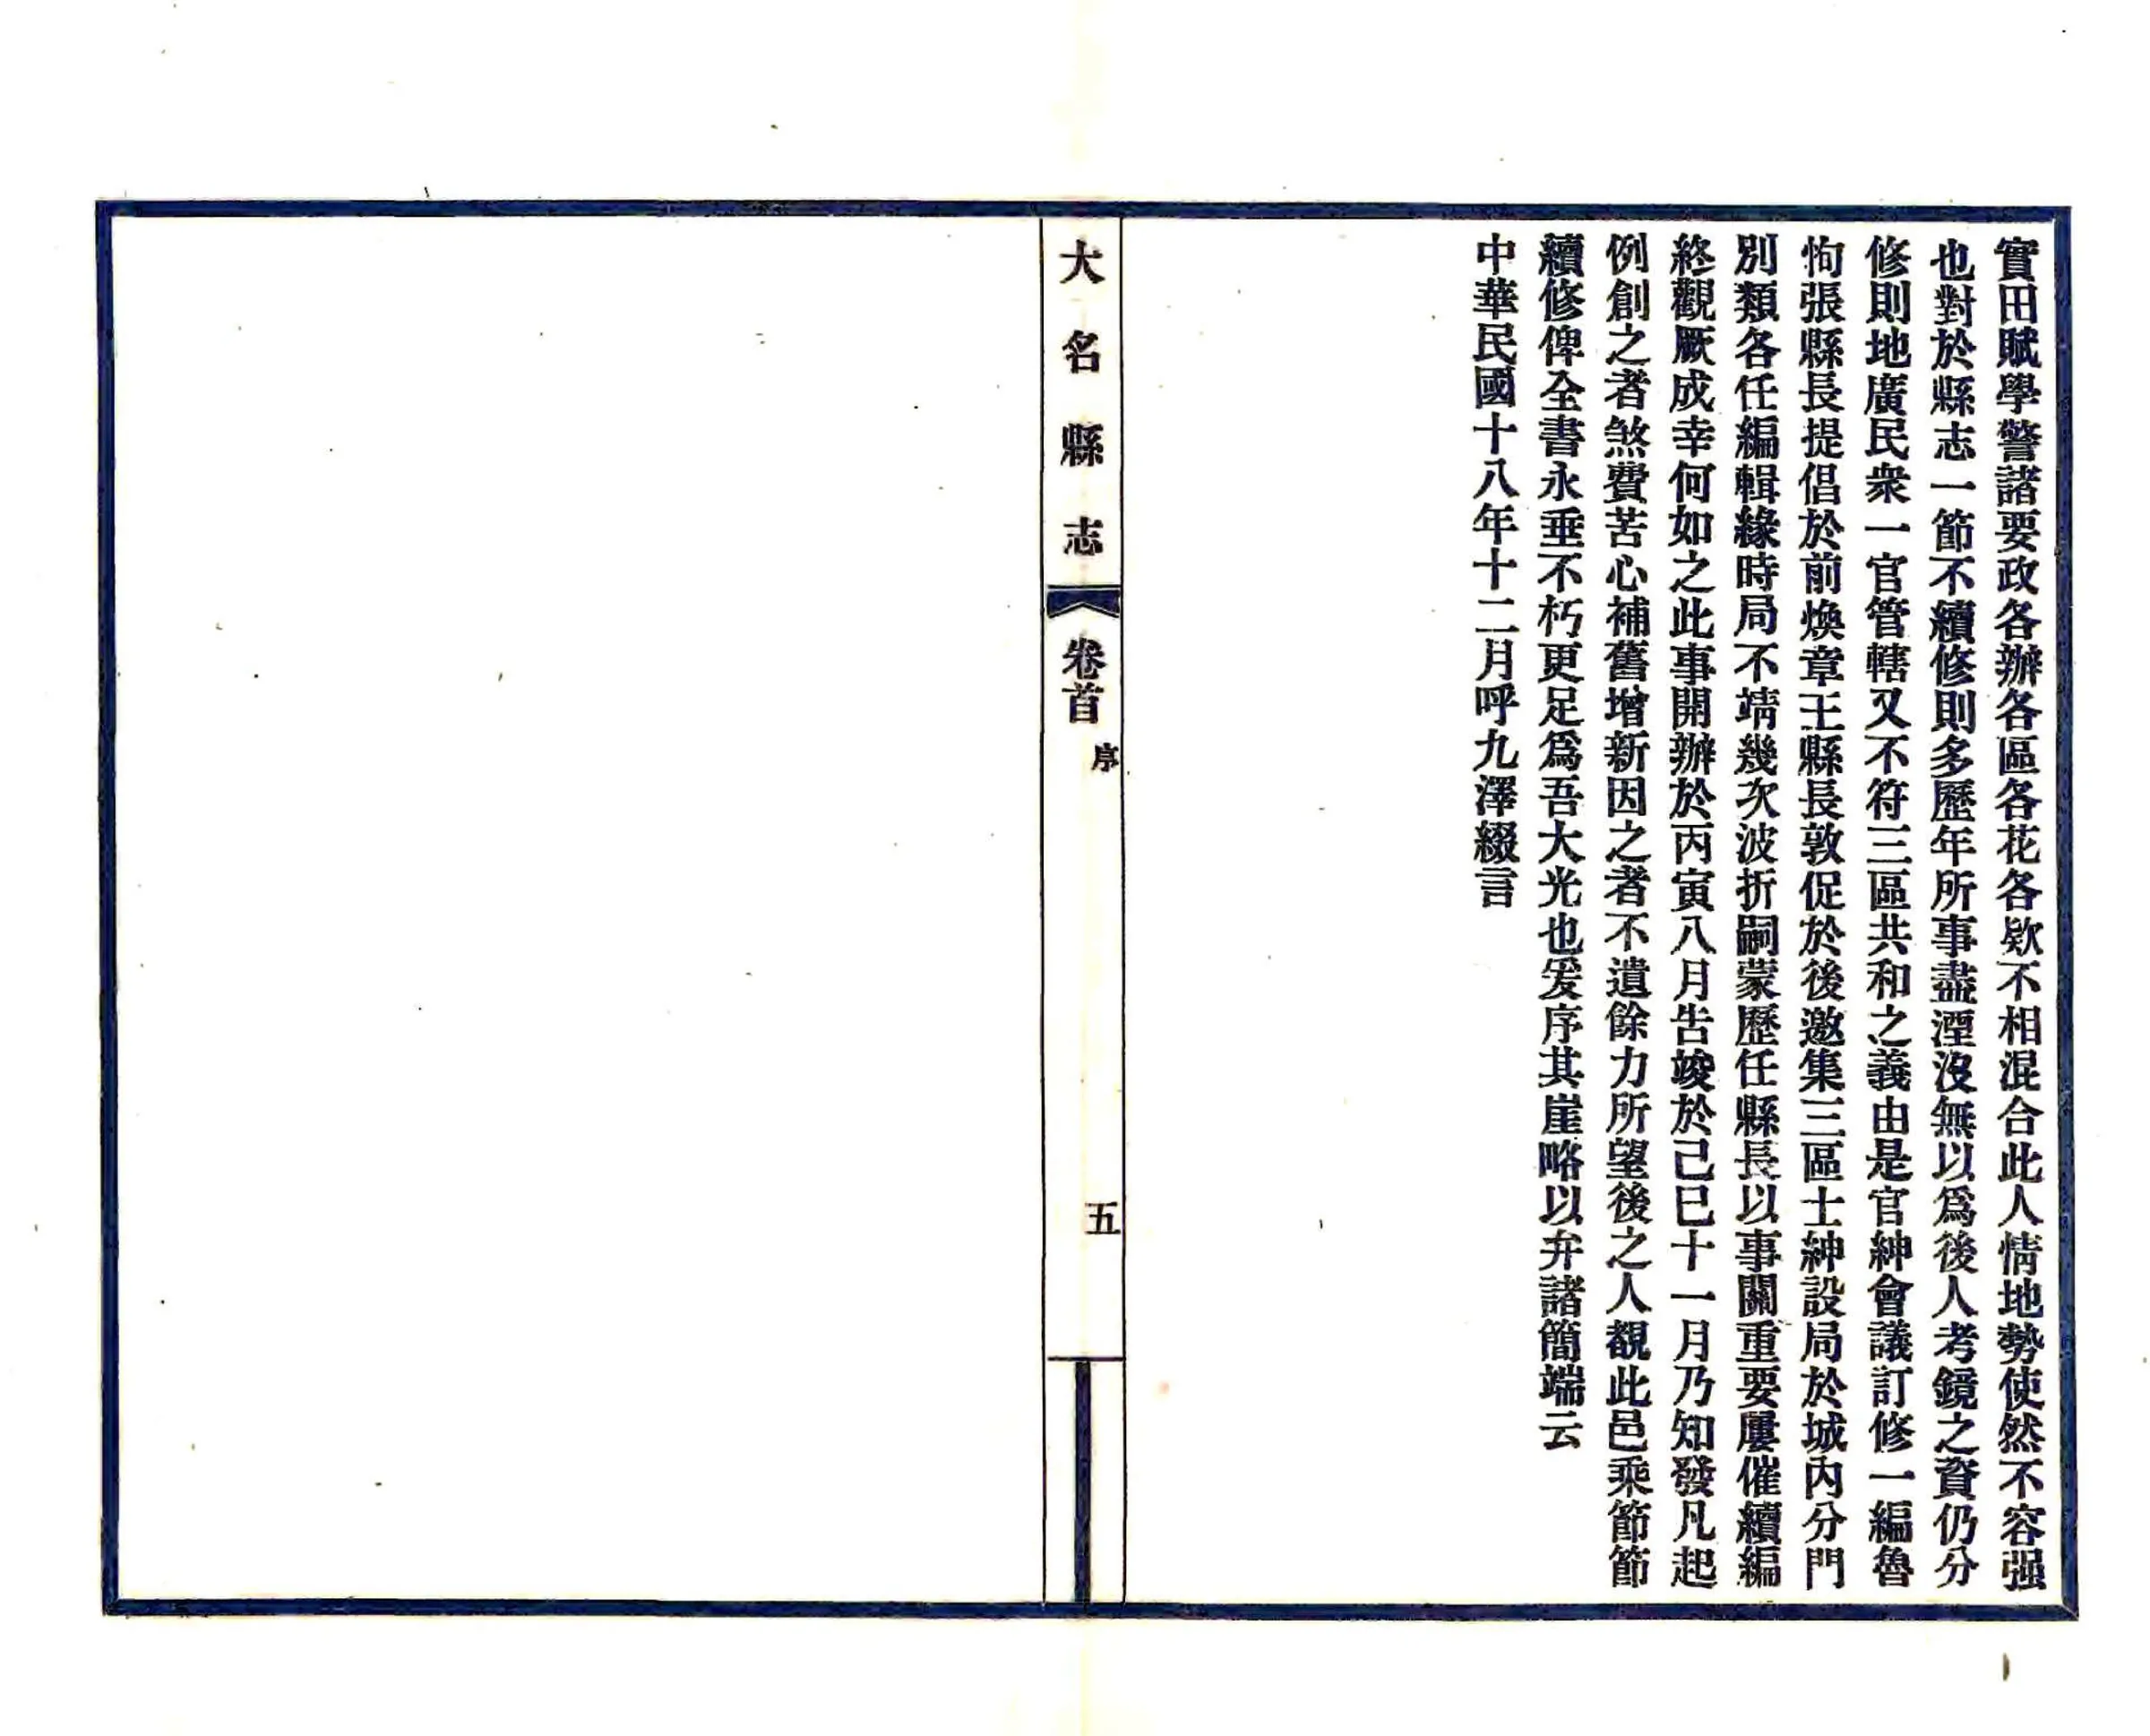 實田賦學警諸要政各辦各區各花各欵不相混合此人情地勢使然不容强
也對於縣志一節不續修則多歷年所事盡湮沒無以爲後人考鏡之資仍分
修則地廣民衆一官管轄又不符三區共和之義由是官紳會議訂修一編魯
恂張縣長提倡於前煥章王縣長敦促於後邀集三區士紳設局於城內分門
別類各任編輯緣時局不靖幾次波折嗣蒙歷任縣長以事關重要屢催續編
終觀厥成幸何如之此事開辦於丙寅八月告竣於己巳十一月乃知發凡起
例創之者煞費苦心補舊增新因之者不遺餘力所望後之人覩此邑乘節節
續修俾全書永垂不朽更足爲吾大光也爰序其崖略以弁諸簡端云
中華民國十八年十二月呼九澤綴言
大名縣志
卷首
序
五